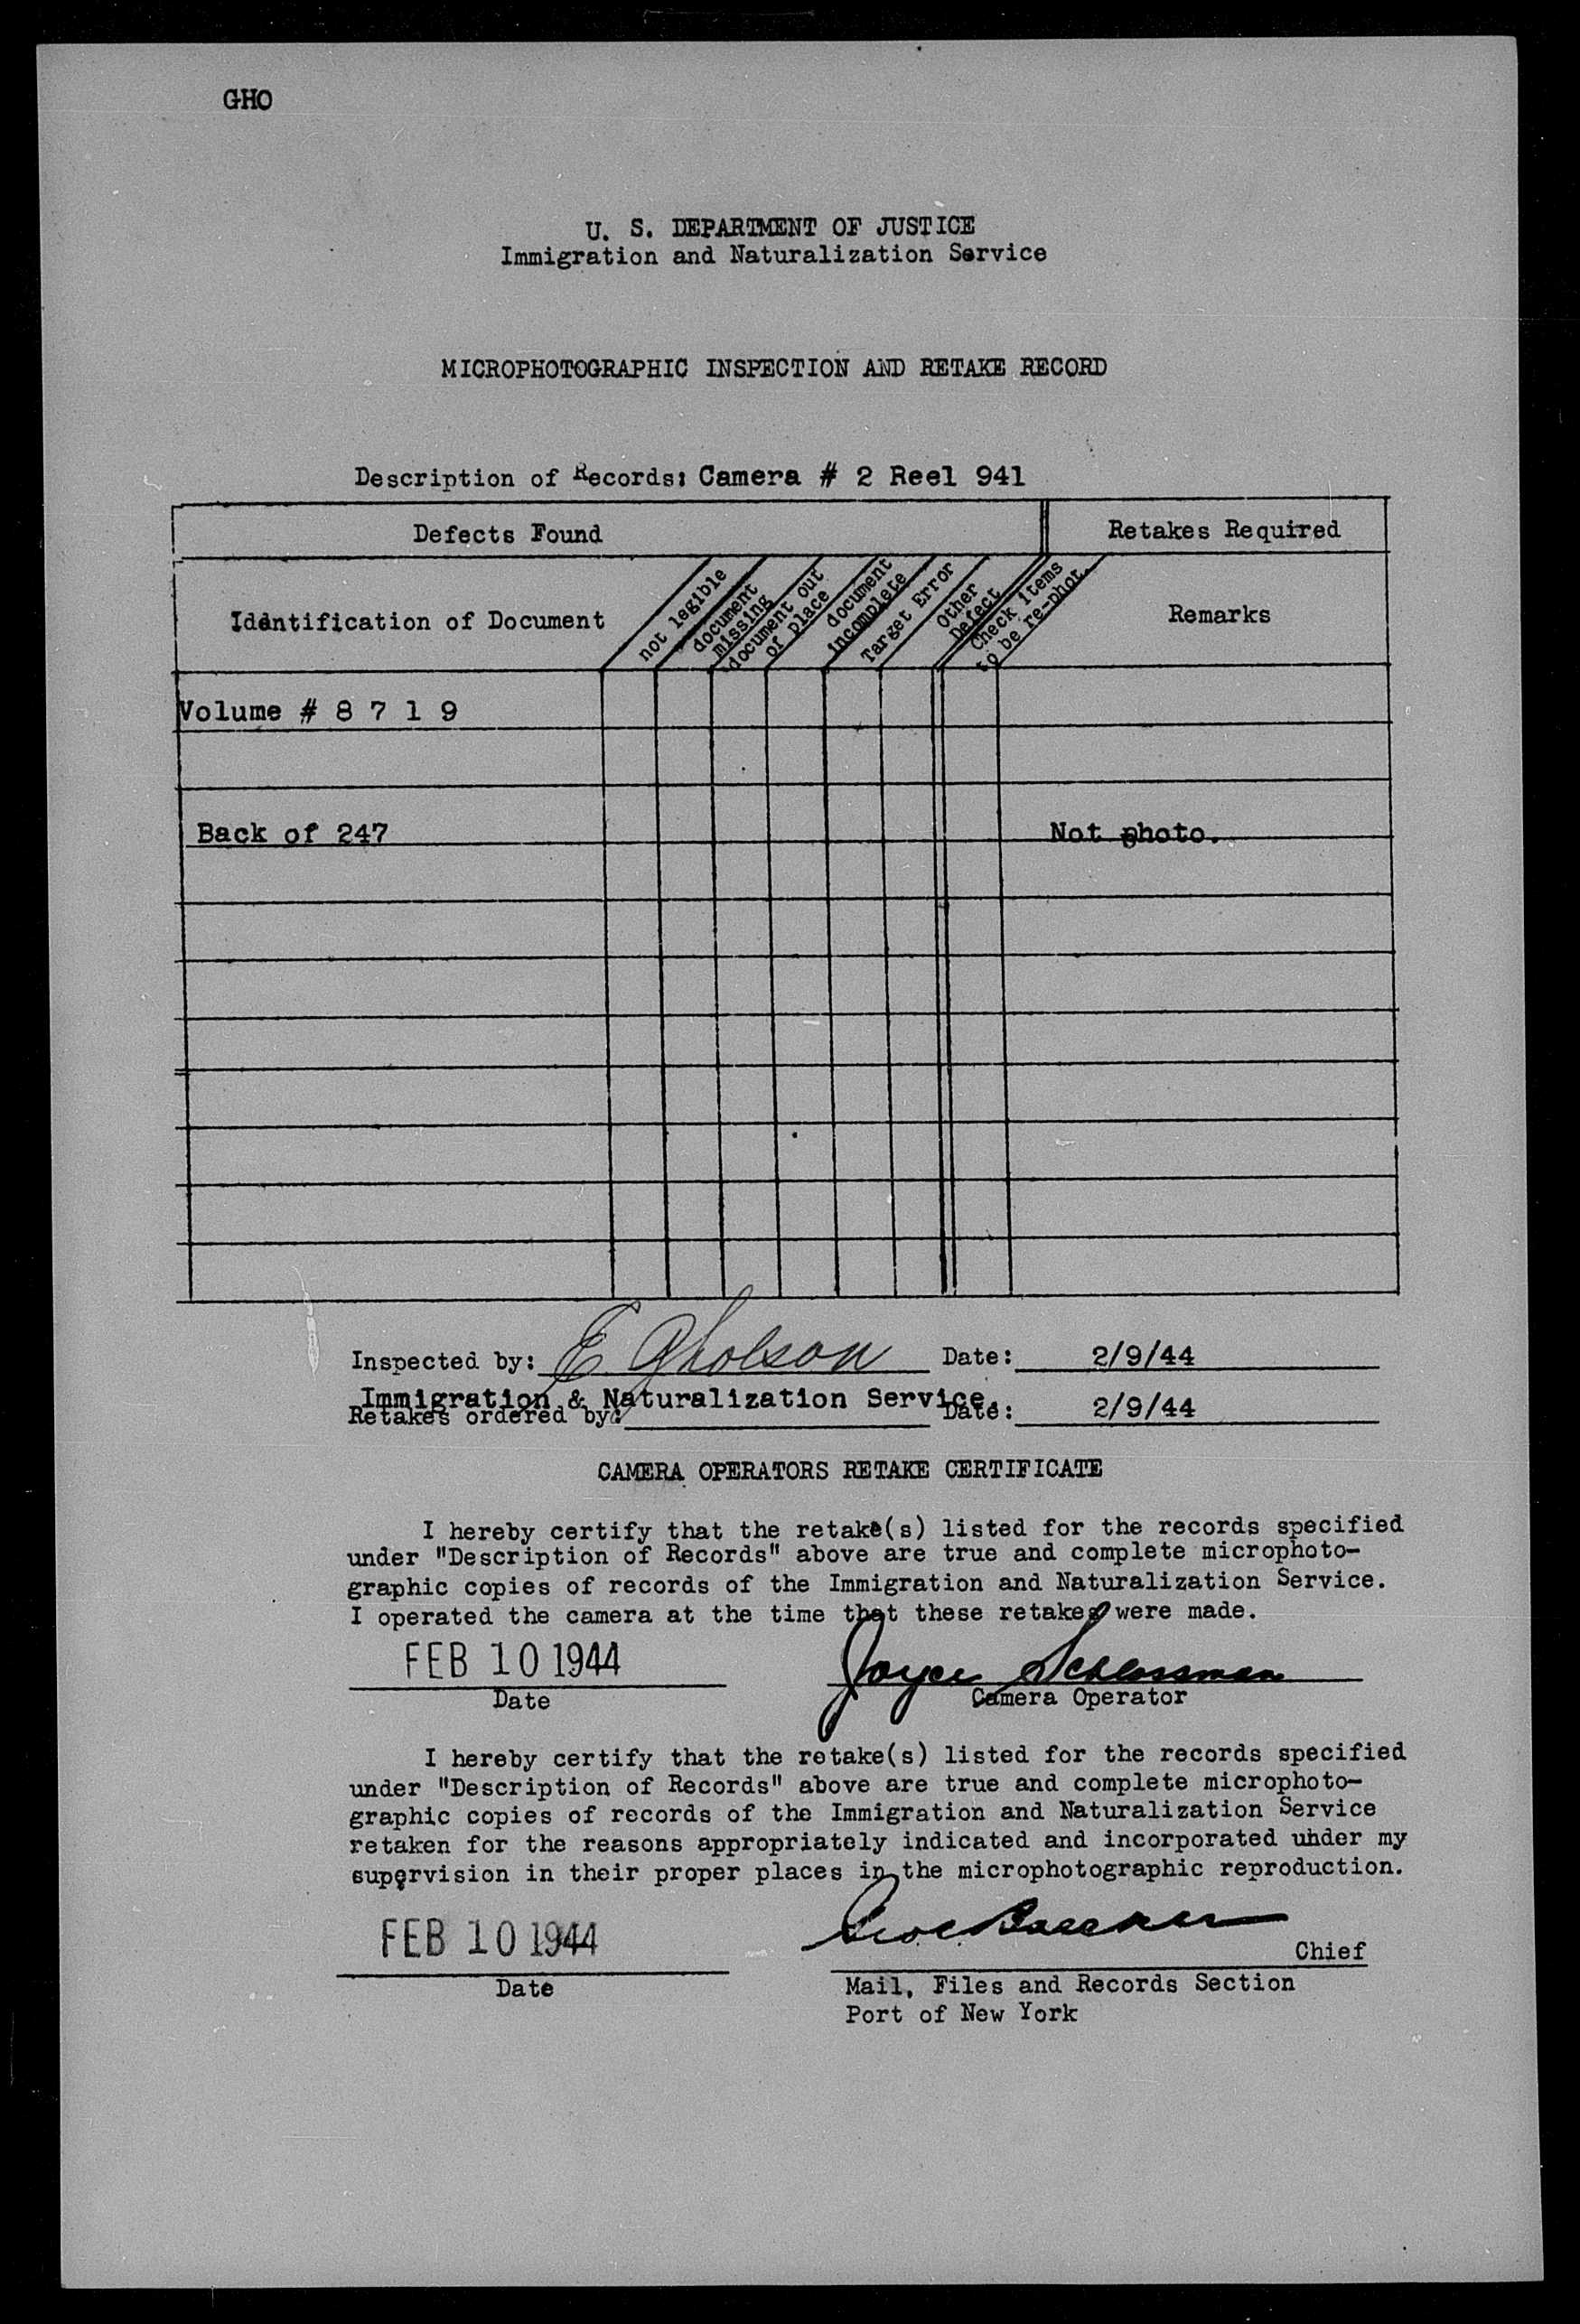 GHO
U. S. DEPARTMENT OF JUSTICE
Immigration and Naturalization Service
MICROPHOTOGRAPHIC INSPECTION AND RETAKE RECORD
Description of Records: Camera # 2 Reel 941
Defects Found
Retakes Required
Identification of Document
not legible
document missing
document out of place
document incomplete
Target Error
Other Defect
Check items to be re-phot.
Remarks
Volume # 8 7 1 9
Back of 247 Not photo.
Inspected by: E Gholson Date: 2/9/44
Immigration & Naturalization Service.
Retakes ordered by: Date: 2/9/44
CAMERA OPERATORS RETAKE CERTIFICATE
I hereby certify that the retake(s) listed for the records specified
under "Description of Records" above are true and complete microphoto-
graphic copies of records of the Immigration and Naturalization Service.
I operated the camera at the time that these retakes were made.
FEB 10 1944 Joyce Schlossman
Date Camera Operator
I hereby certify that the retake(s) listed for the records specified
under "Description of Records" above are true and complete microphoto-
graphic copies of records of the Immigration and Naturalization Service
retaken for the reasons appropriately indicated and incorporated under my
supervision in their proper places in the microphotographic reproduction.
FEB 10 1944
Chief
Date Mail, Files and Records Section
Port of New York